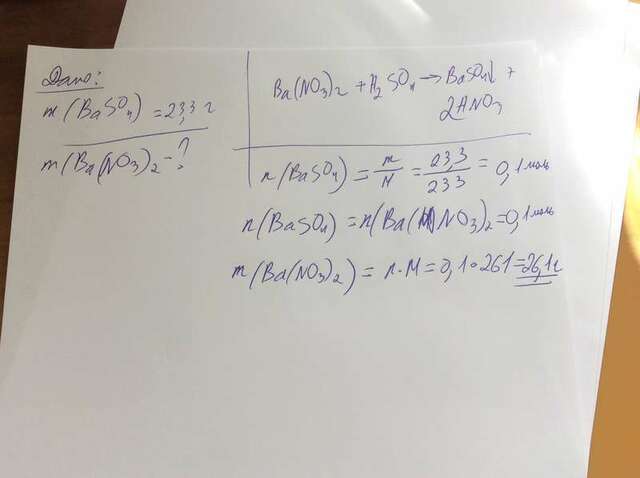 Дано:
m(BaSO₄) = 23,3 г
m(Ba(NO₃)₂ - ?
Ba(NO₃)₂ + H₂SO₄ → BaSO₄↓ +
2HNO₃
n(BaSO₄) = m/M = 23,3/233 = 0,1 моль
n(BaSO₄) = n(Ba(NO₃)₂ = 0,1 моль
m(Ba(NO₃)₂) = n·M = 0,1·261 = 26,1 г